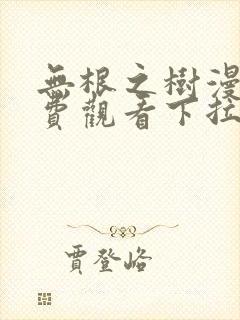 無根之樹漫
費觀看下拉
賈登峪